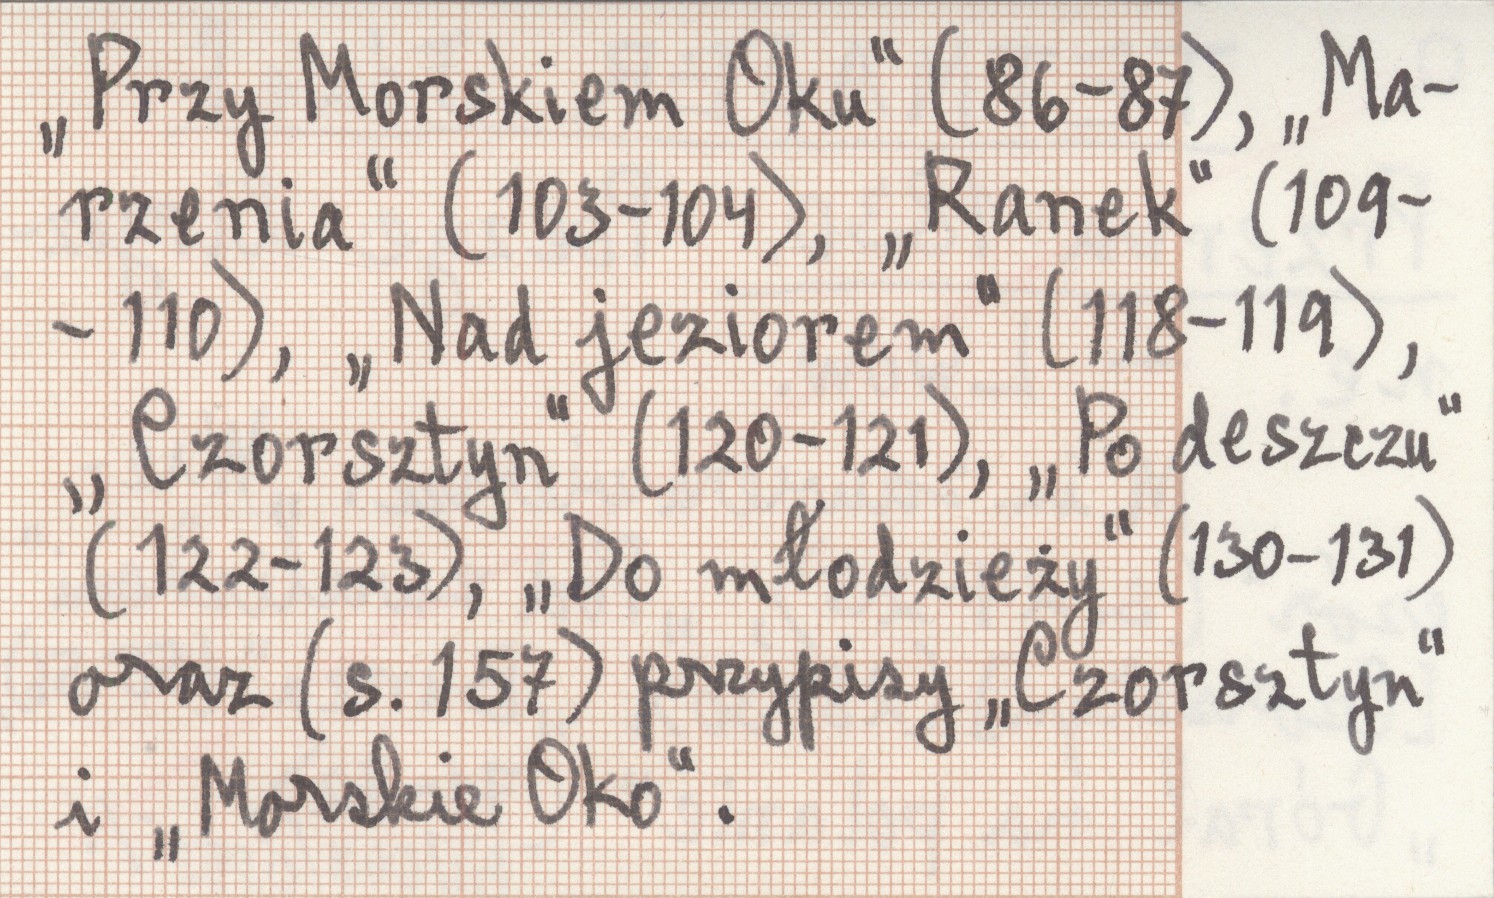 „Przy Morskiem Oku“ (86-87), „Ma-
rzenia“ (103-104), „Ranek“ (109-
-110), „Nad jeziorem“ (118-119),
„Czorsztyn“ (120-121), „Po deszczu“
(122-123), „Do młodzieży“ (130-131)
oraz (s. 157) przypisy „Czorsztyn“
i „Morskie Oko“.